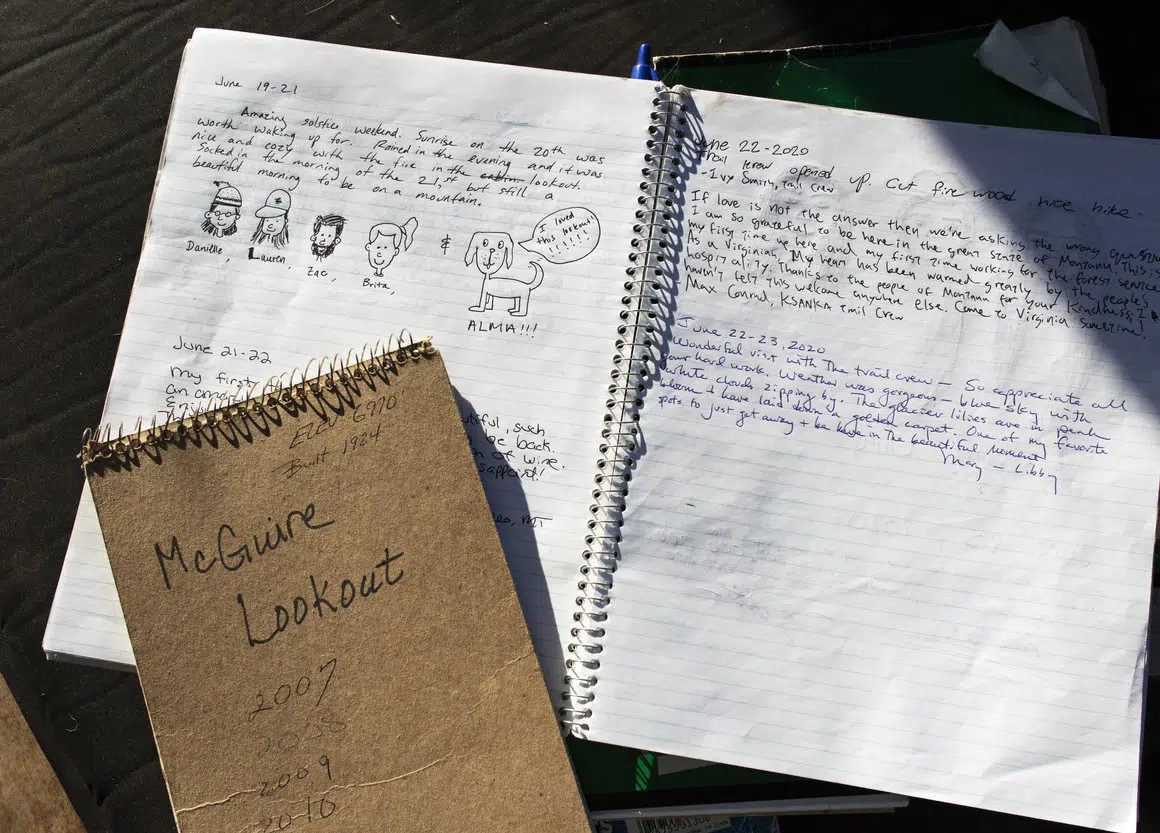 June 19-21
Amazing solstice weekend. Sunrise on the 20th was
worth waking up for. Rained in the evening and it was
nice and cozy with the fire in the lookout.
Socked in the morning of the 21st but still a
beautiful morning to be on a
mountain.
Danielle,
Lauren,
Zac,
Brita,
&
I loved
this lookout!
!!!!!
ALMA!!!
June 21-22
My first
an
utiful, such
be back.
of wire.
sappoint!
MT
June 22-2020
Trail krew opened up. Cut fire wood nice hike.
- Ivy Smith, Trail Crew
If love is not the answer then we're asking the wrong question
I am so grateful to be here in the great state of Montana. This is
my first time up here and my first time working for the forest service
As a Virginian, My hear has been warmed greatly by the people's
hospitality. Thanks to the people of Montana for your Kindness, I
haven't felt this welcome anywhere else. Come to Virginia sometime!
Max Conrad, KSANKA Trail Crew
June 22-23, 2020
Wonderful visit with The trail crew - So appreciate all
your hard work. Weather was gorgeous - blue sky with
white clouds zipping by. The glacier lilies are in peak
bloom & have laid down a golden carpet. One of my favorite
spots to just get away + be in the beautiful moment
Mary - Libby
Elev 6990
Built 1924
McGuire
Lookout
2007
2008
2009
2010